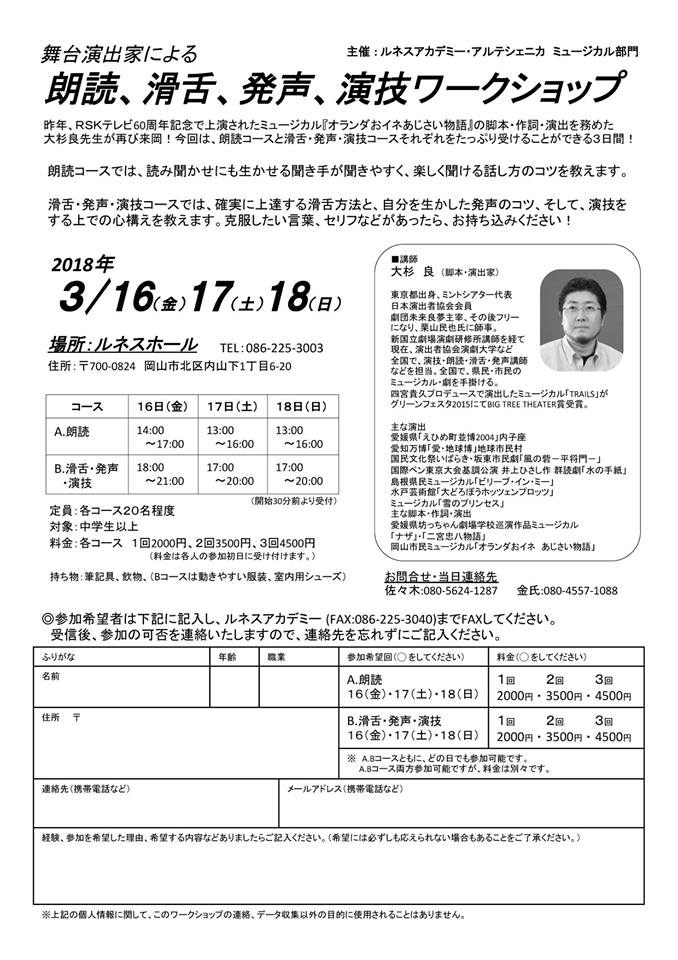 舞台演出家による
主催：ルネスアカデミー・アルテシェニカ ミュージカル部門
朗読、滑舌、発声、演技ワークショップ
昨年、RSKテレビ60周年記念で上演されたミュージカル『オランダおイネあじさい物語』の脚本・作詞・演出を務めた
大杉良先生が再び来岡！今回は、朗読コースと滑舌・発声・演技コースそれぞれをたっぷり受けることができる３日間！
朗読コースでは、読み聞かせにも生かせる聞き手が聞きやすく、楽しく聞ける話し方のコツを教えます。
滑舌・発声・演技コースでは、確実に上達する滑舌方法と、自分を生かした発声のコツ、そして、演技を
する上での心構えを教えます。克服したい言葉、セリフなどがあったら、お持ち込みください！
2018年
3/16(金)17(土)18(日)
場所：ルネスホール TEL：086-225-3003
住所：〒700-0824 岡山市北区内山下1丁目6-20
コース 16日(金) 17日(土) 18日(日)
A.朗読 14:00～17:00 13:00～16:00 13:00～16:00
B.滑舌・発声・演技 18:00～21:00 17:00～20:00 17:00～20:00
(開始30分前より受付)
定員：各コース２０名程度
対象：中学生以上
料金：各コース １回2000円、２回3500円、３回4500円
(料金は各人の参加初日に受け付けます。)
持ち物：筆記具、飲物、(Bコースは動きやすい服装、室内用シューズ)
■講師
大杉 良 (脚本・演出家)
東京都出身、ミントシアター代表
日本演出者協会会員
劇団未来良夢主宰、その後フリー
になり、栗山民也氏に師事。
新国立劇場演劇研修所講師を経て
現在、演出者協会演劇大学など
全国で、演技・朗読・滑舌・発声講師
などを担当。全国で、県民・市民の
ミュージカル・劇を手掛ける。
四宮貴久プロデュースで演出したミュージカル「TRAILS」が
グリーンフェスタ2015にてBIG TREE THEATER賞受賞。
主な演出
愛媛県「えひめ町並博2004」内子座
愛知万博「愛・地球博」地球市民村
国民文化祭いばらき・坂東市民劇「風の砦－平将門－」
国際ペン東京大会基調公演 井上ひさし作 群読劇「水の手紙」
島根県民ミュージカル「ビリーブ・イン・ミー」
水戸芸術館「大どろぼうホッツェンプロッツ」
ミュージカル「雪のプリンセス」
主な脚本・作詞・演出
愛媛県坊っちゃん劇場学校巡演作品ミュージカル
「ナザ」・「二宮忠八物語」
岡山市民ミュージカル「オランダおイネ あじさい物語」
お問合せ・当日連絡先
佐々木:080-5624-1287 金氏:080-4557-1088
◎参加希望者は下記に記入し、ルネスアカデミー (FAX:086-225-3040)までFAXしてください。
受信後、参加の可否を連絡いたしますので、連絡先を忘れずにご記入ください。
ふりがな 年齢 職業 参加希望回(○をしてください) 料金(○をしてください)
名前
A.朗読
１６(金)・１７(土)・１８(日)
１回 ２回 ３回
2000円・3500円・4500円
住所 〒
B.滑舌・発声・演技
１６(金)・１７(土)・１８(日)
１回 ２回 ３回
2000円・3500円・4500円
※ A.Bコースともに、どの日でも参加可能です。
A.Bコース両方参加可能ですが、料金は別々です。
連絡先(携帯電話など) メールアドレス(携帯電話など)
経験、参加を希望した理由、希望する内容などありましたらご記入ください。(希望には必ずしも応えられない場合もあることをご了承ください。)
※上記の個人情報に関して、このワークショップの連絡、データ収集以外の目的に使用されることはありません。